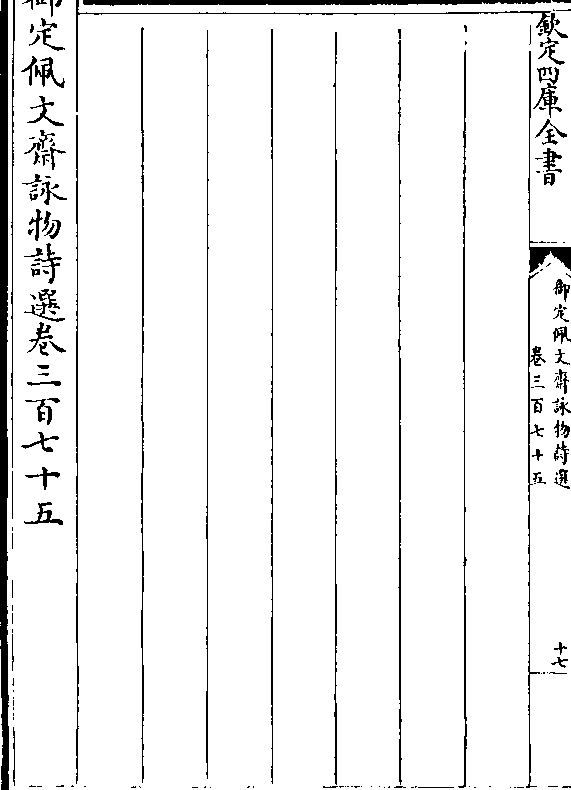 欽定四庫全書
御定佩文齋詠物詩選
卷三百七十五
十七
御定佩文齋詠物詩選卷三百七十五